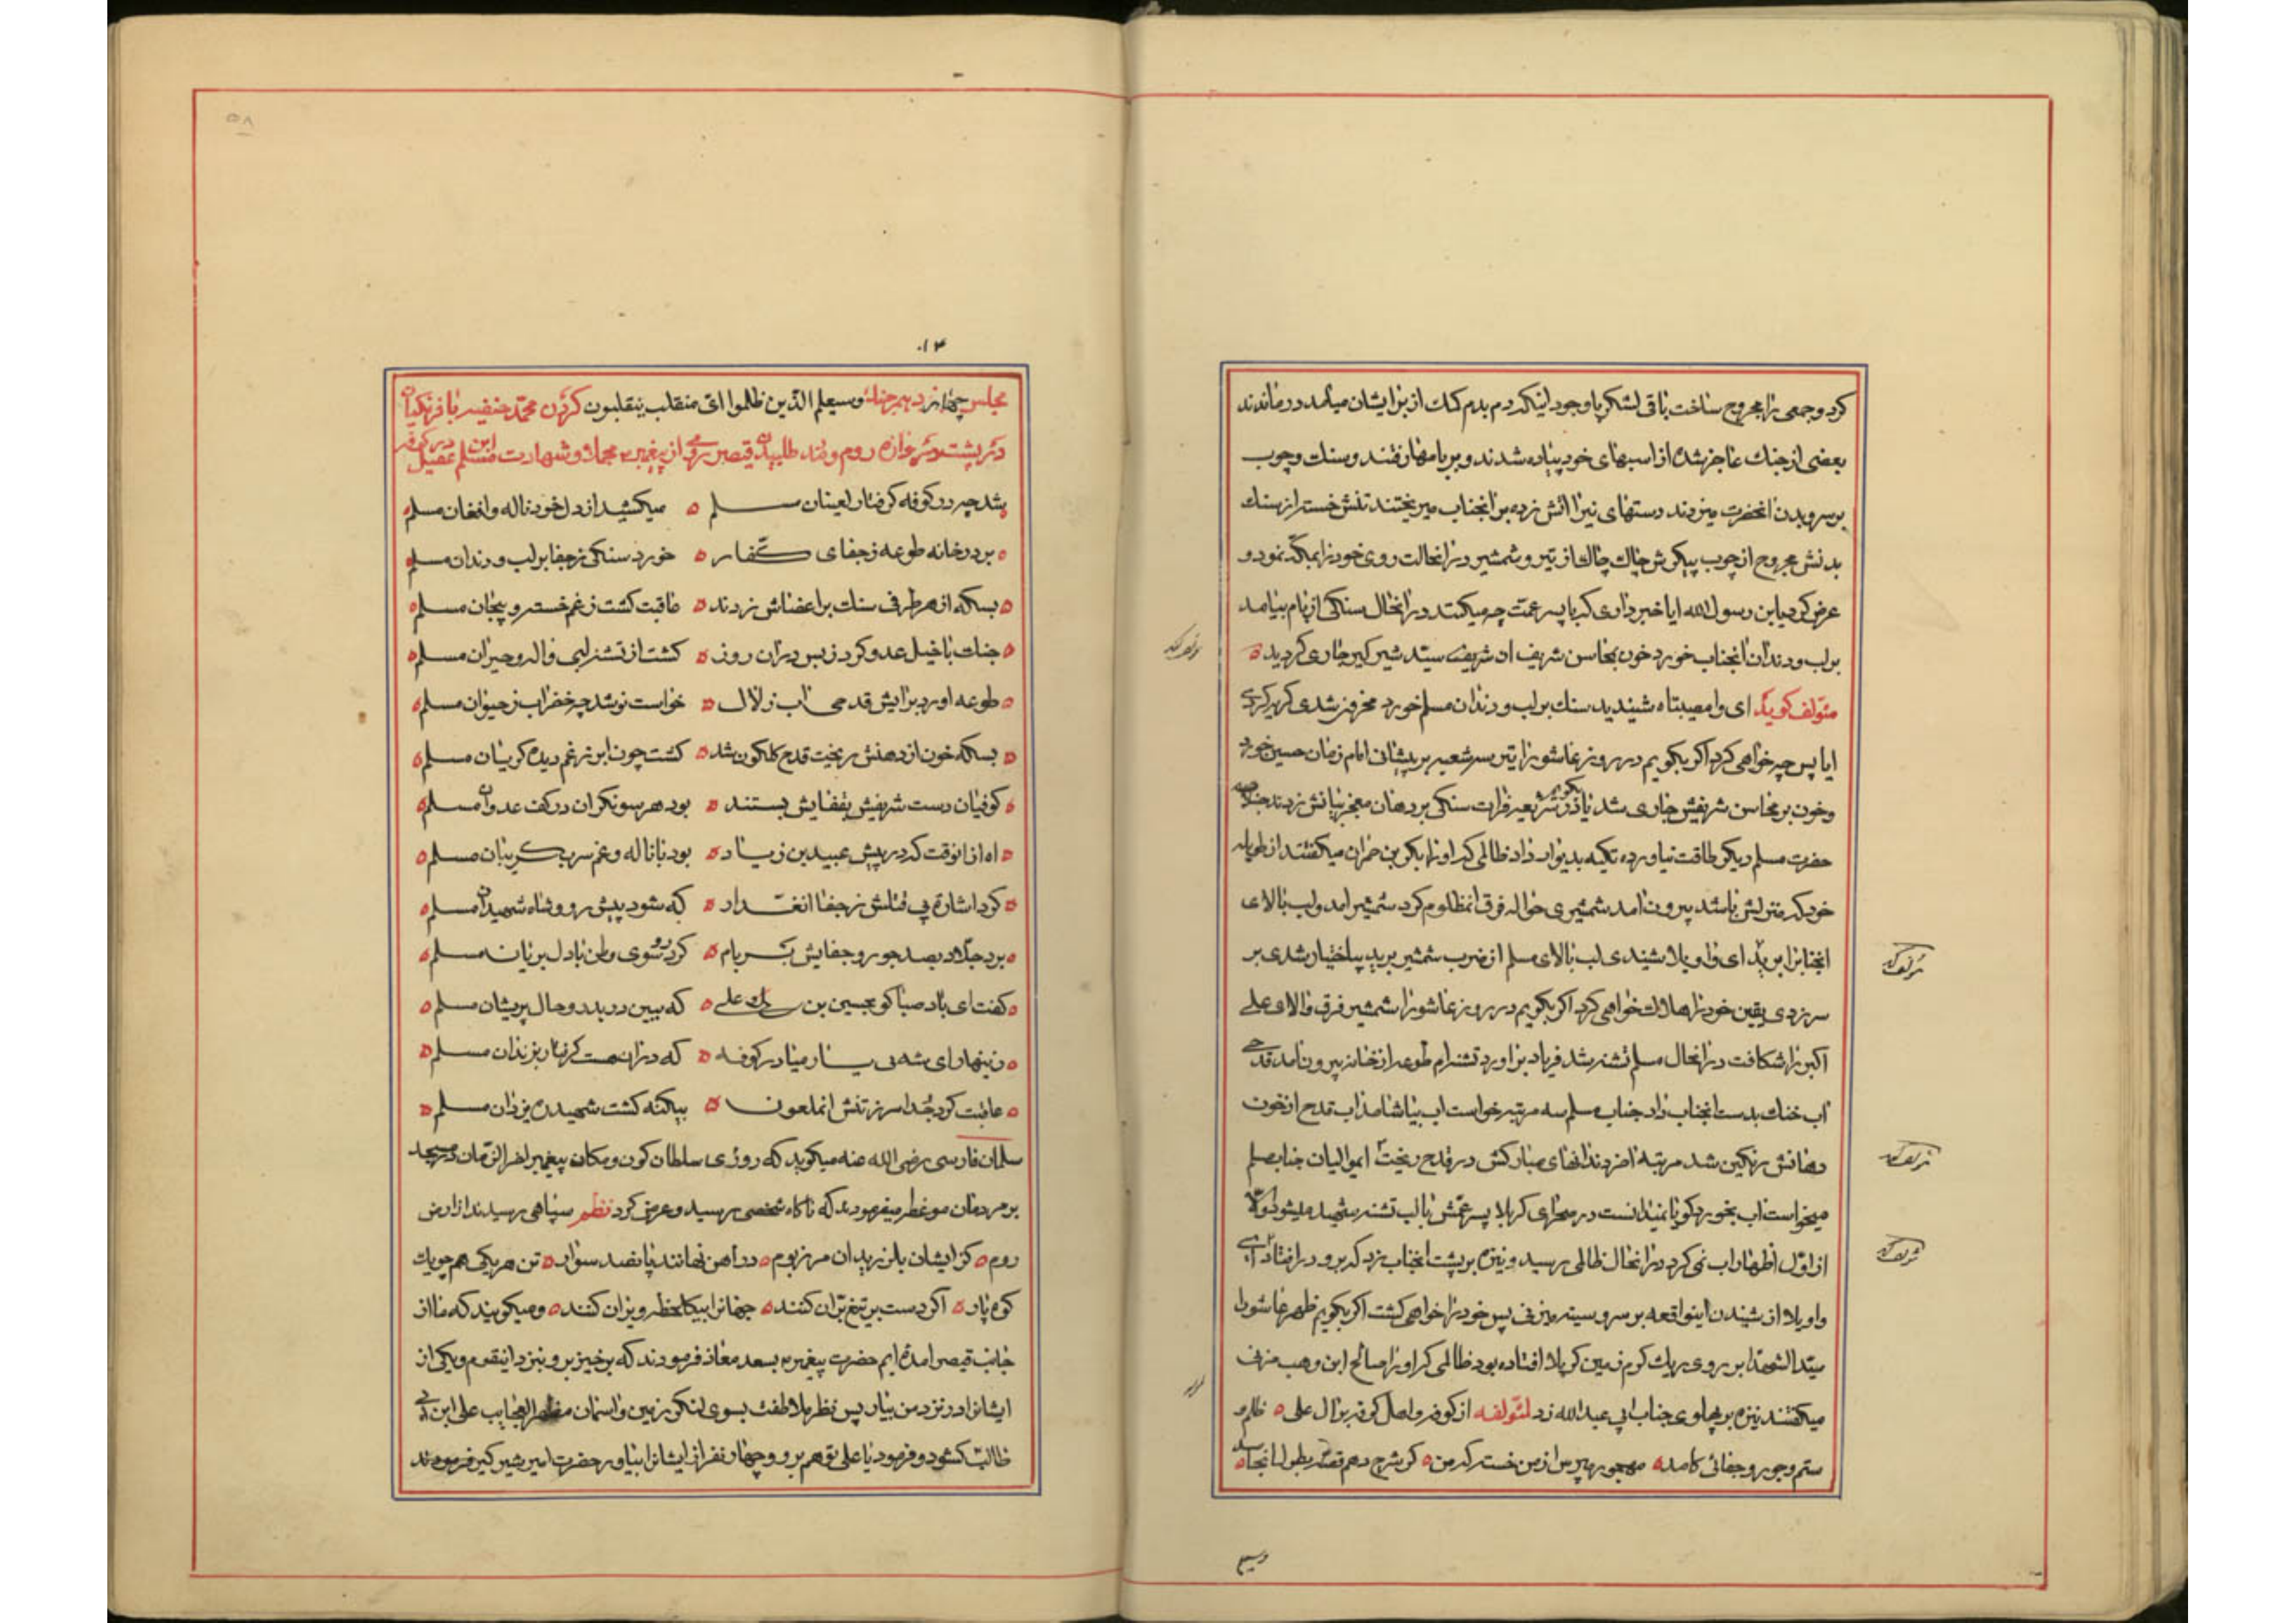 کرد و جمعی را مجروح ساخت باقی لشکر با وجود اینکه دم بدم کمک از برا ایشان میامد درماندند
بعضی از جنک عاجز شده از اسبهای خود پیاده شدند و بر بامها رفتند و سنک و چوب
بر سر و بدن انحضرت میزدند دستهای نیرا اتش زده بر انجناب میریختند تنش خسته از سنک
بدنش مجروح از چوب پیکرش چاک چاک از تیر و شمشیر در انحالت روی خود را بمکه نمود و
عرض کرد یابن رسول الله ایا خبر داری که با پسر عمت چه میکنند در انحال سنکی از بام بیامد
بر لب و دندان انجناب خورد خون بمحاسن شریف ان سید شیر کیر جاری کردید
مئولف کوید ای وا مصیبتاه شنیدید سنک بر لب و دندان مسلم خورد محزون شدی کریه کردی
ایا پس چه خواهی کرد اکر بکویم در روز عاشورا تیر سه شعبه بر پیشانی امام زمان حسین خورد
و خون بر محاسن شریفش جاری شد یا در شریعه فرات سنکی بر دهان معجز بیانش زدند
حضرت مسلم دیکر طاقت نیاورده تکیه بدیوار داد ظالمی که او را بکر بن حمران میکفتند از
خود که منزلش باشد بیرون امد شمشیری حواله فرق انمظلوم کرد شمشیر امد و لب بالای
انجنابرا برید ای واویلا شیندی لب بالای مسلم از ضرب شمشیر برید بیاختیار شدی بر
سر زدی یقین خود را هلاک خواهی کرد اکر بکویم در روز عاشورا شمشیر فرق والای علی
اکبر را شکافت در انحال مسلم تشنه شد فریاد براورد تشنه ام طوعه از خانه بیرون امد قدحی
اب خنک بدست انجناب داد جناب مسلم سه مرتبه خواست اب بیاشامد اب قدح از خون
دهانش رنکین شد مرتبه اخر دندانهای مبارکش در قدح ریخت ایموالیان جناب مسلم
میخواست اب بخورد کویا نمیدانست در صحرای کربلا پسر عمش با لب تشنه شهید میشود والا
از اول اظهار اب نمی کرد در انحال ظالمی رسید و نیزه بر پشت انجناب زد که برو در افتاد ای
واویلا از شیندن اینواقعه بر سر و سینه میزنی پس خود را خواهی کشت اکر بکویم ظهر عاشورا
سید الشهدا بر روی ریک کرم زمین کربلا افتاده بود ظالمی که او را صالح ابن وهب مزنی
میکفتند نیزه بر پهلوی جناب ابی عبدالله زد لمئولفه از کوفه و اصل کوفه بر ال علی ظلم و
ستم و جور و جفائی کامد مهجور مپرس از من خسته که من کر شرح دهم قصه بطول انجامد
وسیعلم
۱۴
مجلس چهاردهم جنک وسیعلم الذین ظلموا ای منقلب ینقلبون کردن محمد حنفیه با فرنکیان
در پشت دروازه روم و پند طلبیدن قیصر رومی از پیغمبر محمد و شهادت مسلم ابن عقیل در کوفه
شد چه در کوفه کرفتار لعینان مسلم میکشید از دل خود ناله و افغان مسلم
بر در خانه طوعه ز جفای کفار خورد سنکی ز جفا بر لب و دندان مسلم
بسکه از هر طرفی سنک بر اعضاش زدند عاقبت کشت ز غم خسته و بیجان مسلم
جنک با خیل عدو کرد ز بس در ان روز کشت از تشنه لبی واله و حیران مسلم
طوعه اورد برایش قدحی اب زلال خواست نوشد چه خضر اب ز حیوان مسلم
بسکه خون از دهنش ریخت قدح کلکون شد کشت چون ابر ز غم دیده کریان مسلم
کوفیان دست شریفش بقفایش بستند بود هر سو نکران در کف عدوان مسلم
اه از انوقت که در پیش عبید بن زیاد بود با ناله و غم سر بکریبان مسلم
کرد اشاره پی قتلش ز جفا انغدار که شود پیش رو شاه شهیدان مسلم
برد جلاد بصد جور و جفایش بر بام کرد رو سوی وطن با دل بریان مسلم
کفت ای باد صبا کو بحسین بن علی که ببین دربدر و حال پریشان مسلم
زینهار ای شه بی یار میا در کوفه که در ان هست کرفتار بزندان مسلم
عاقبت کرد جدا سر ز تنش انملعون بیکنه کشت شهید ره یزدان مسلم
سلمان فارسی رضی الله عنه میکوید که روزی سلطان کون و مکان پیغمبر اخر الزمان در مسجد
بر مردمان موعظه میفرمودند که ناکاه شخصی رسید و عرض کرد نظم سپاهی رسیدند از ارض
روم کز ایشان بلرزید ان مرز بوم در اهن نهانند پانصد سوار تن هر یکی همچو یک
کوه پاره اکر دست بر تیغ بران کنند جهانرا بیکلحظه ویران کنند و میکویند که ما از
جانب قیصر امده ایم حضرت پیغمبر بسعد معاذ فرمودند که برخیز برو بنزد اینقوم و یکی از
ایشانرا در نزد من بیار پس نظر ملاطفت بسوی لنکر زمین و اسمان مظهر العجایب علی ابن ابی
طالب کشود و فرمود یا علی تو هم برو و چهار نفر از ایشانرا بیاور حضرت امیر شیر کیر فرمودند
۵۸